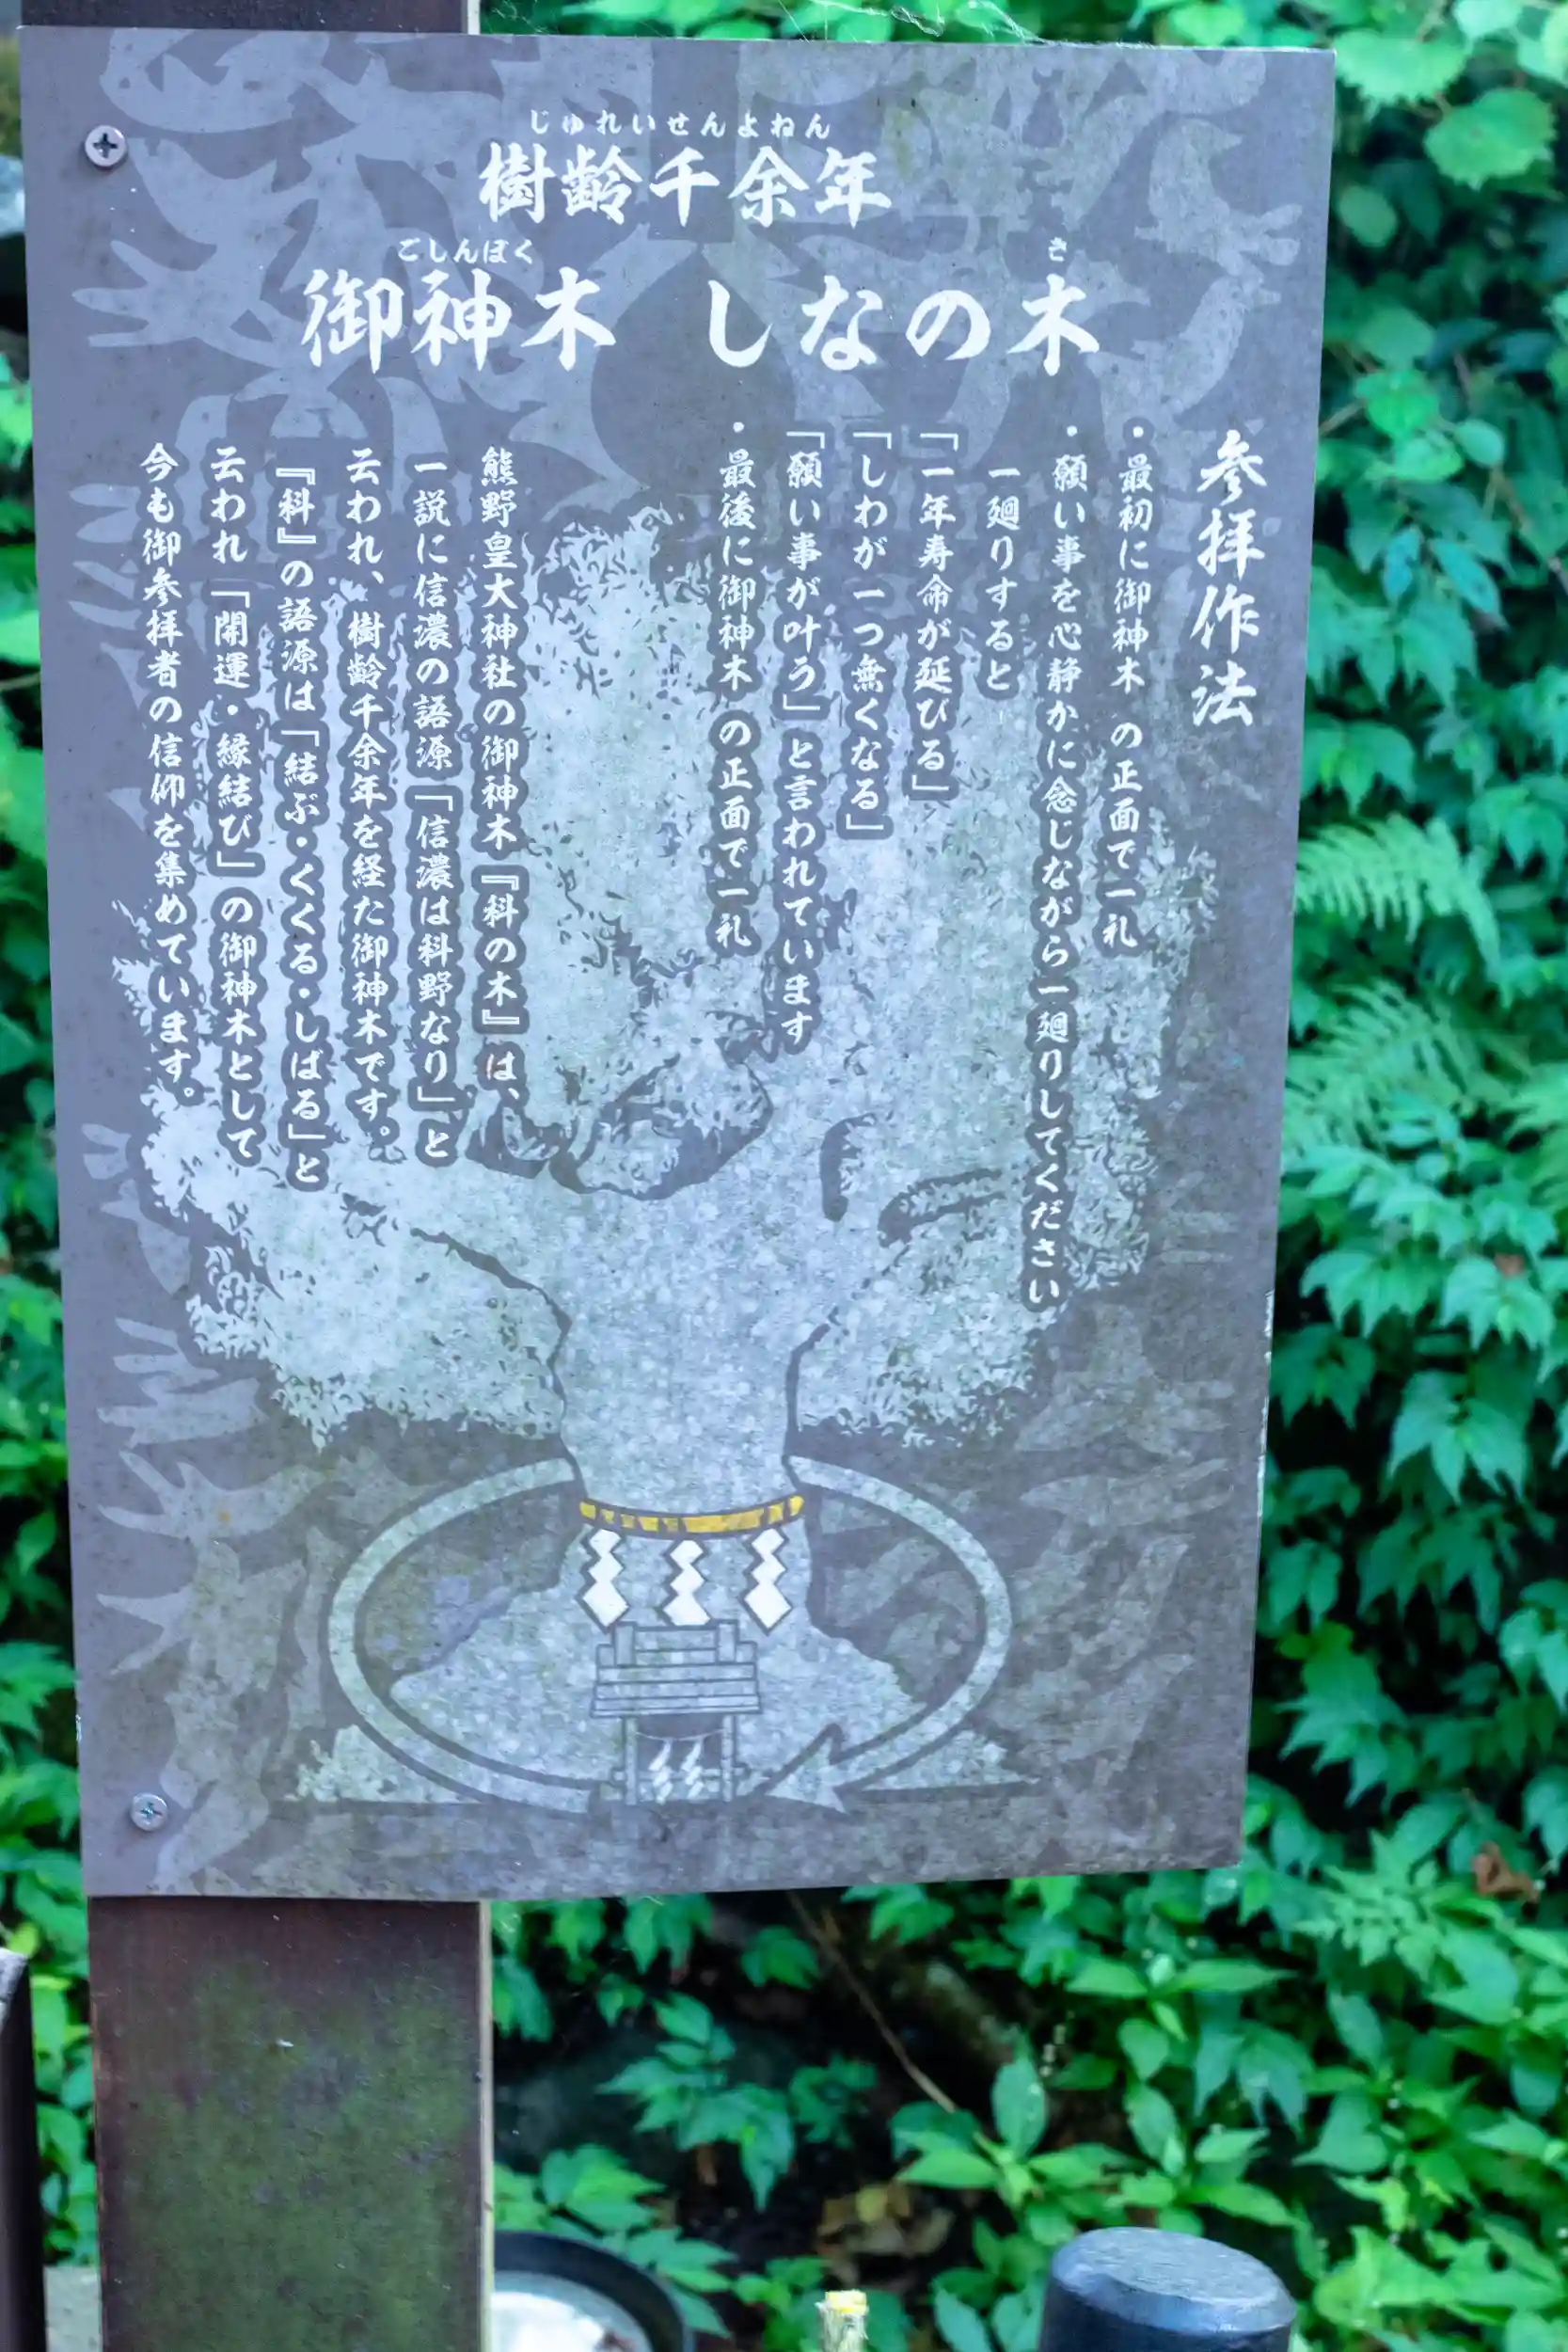 じゅれいせんよねん
樹齢千余年
ごしんぼく さ
御神木 しなの木
参拝作法
・最初に御神木 の正面で一礼
・願い事を心静かに念じながら一廻りしてください
一廻りすると
「一年寿命が延びる」
「しわが一つ無くなる」
「願い事が叶う」と言われています
・最後に御神木 の正面で一礼
熊野皇大神社の御神木『科の木』は、
一説に信濃の語源「信濃は科野なり」と
云われ、樹齢千余年を経た御神木です。
『科』の語源は「結ぶ・くくる・しばる」と
云われ「開運・縁結び」の御神木として
今も御参拝者の信仰を集めています。